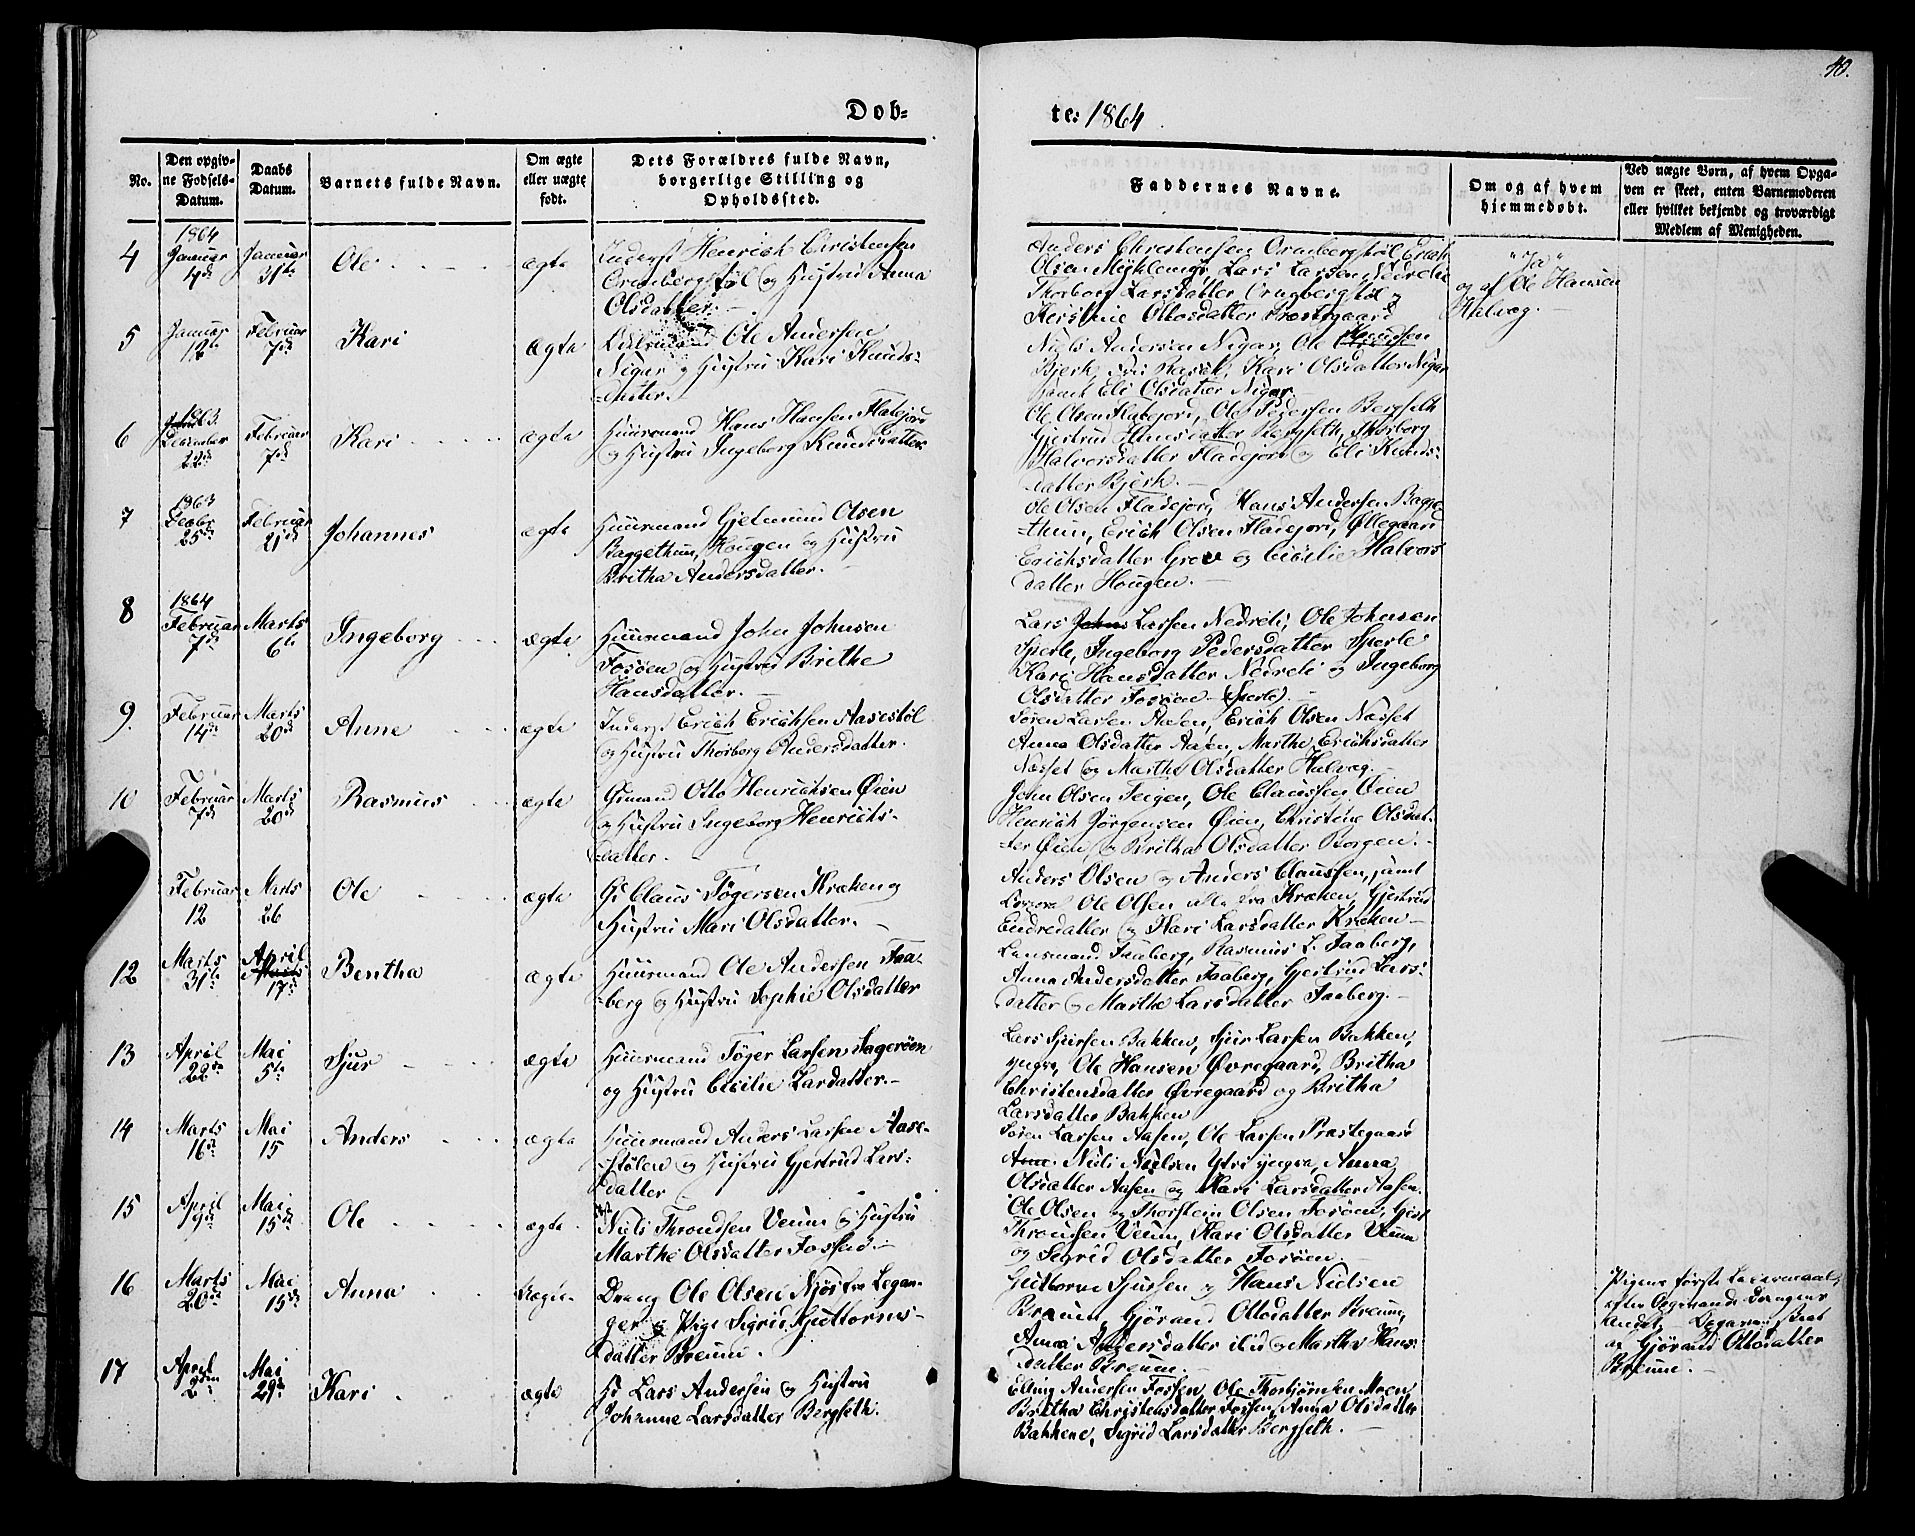 40.
Døb=
te: 1864
No.
Den opgiv-
ne Fødsels-
Datum.
Daabs
Datum.
Barnets fulde Navn.
Om ægte
eller uægte
født.
Dets Forældres fulde Navn,
borgerlige Stilling og
Opholdssted.
Faddernes Navne.
Om og af hvem
hjemmedøbt.
Ved uægte Børn, af hvem Opga-
ven er skeet, enten Barnemoderen
eller hvilket bekjendt og troværdigt
Medlem af Menigheden.
4
1864
Januar
4de
Januar
31te
Ole
ægte
Inderst Henrich Christensen
og Hustru Anna
Olsdatter.
Anders Christensen
Olsen Myklemyr, Lars Larsen Nedrelie
Thorborg Larsdatter
Kerstine Ottosdatter Præstegaard
"Ja"
og af Ole Hansen
Halvæg.
5
Januar
12te
Februar
7de
Kari
ægte
Ole Andersen
Nigar og Hustru Kari Knuds-
datter.
Niels Andersen Nigar, Ole
Bjerk, Kari Olsdatter Nigar
samt Eli Olsdatter Nigar.
6
1863
December
22de
Februar
7de
Kari
ægte
Huusmand Hans Hansen Fladejord
og Hustru Ingeborg Knudsdatter
Ole Olsen Fladejord, Ole Pedersen Bergseth
Gjertrud Hansdatter Bergseth, Thorborg
Halvorsdatter Fladejord og Eli Knuds-
datter Bjerk.
7
1863
Decbr
25de
Februar
21de
Johannes
ægte
Huusmand Gjelmund Olsen
Baggethun, Hougen og Hustru
Britha Andersdatter.
Ole Olsen Fladejord, Hans Andersen Bagge-
thun, Erich Olsen Fladejord, Øllegaard
Erichsdatter Grov og Cicilie Halvors
datter Hougen.
8
1864
Februar
7de
Marts
6te
Ingeborg
ægte
Huusmand John Johnsen
Fosøen og Hustru Brithe
Hansdatter.
Lars Larsen Nedreli, Ole Johnsen
Sperle, Ingeborg Pedersdatter Sperle
Kari Hansdatter Nedreli og Ingeborg
Olsdatter Fosøen (Sperle).
9.
Februar
14de
Marts
20de
Anne
ægte
Inderst Erich Erichsen Aasestøl
og Hustru Thorborg Andersdatter.
Søren Larsen Aasen, Erich Olsen Næsset
Anna Olsdatter Aasen, Marthe Erichsdatter
Næsset og Marthe Olsdatter Halvæg.
10
Februar
7de
Marts
20de
Rasmus
ægte
Gmand Otto Henrichsen Øien
og Hustru Ingeborg Henrichs-
datter.
John Olsen Teigen, Ole Claussen Øien
Henrich Jørgensen Øien, Christine Olsdat-
ter Øien, og Britha Olsdatter Borgen.
Februar
12
Marts
26
Ole
ægte
Gr Claus Tøgersen Kræken og
Hustru Mari Olsdatter.
Anders Olsen og Anders Claussen, samt
Ole Olsen alle fra Kræken, Gjertrud
Endredatter og Kari Larsdatter Kræken
12
Marts
31te
April
17de
Bentha
ægte
Huusmand Ole Andersen Faa-
berg og Hustru Sophie Olsdatter
Lensmand Faaberg, Rasmus L. Faaberg,
Anna Andersdatter Faaberg, Gjertrud Lars-
datter og Marthe Larsdatter Faaberg.
13
April
22de
Mai
5te
Sjur
ægte
Huusmand Tøger Larsen Sagerøen
og Hustru Cicilie Larsdatter.
Lars Sjursen Bakken, Sjur Larsen Bakken,
yngre, Ole Hansen Øvregaard, Britha
Christensdatter Øvregaard og Britha
Larsdatter Bakken
14
Marts
16de
Mai
15
Anders
ægte
Huusmand Anders Larsen Aase-
stølen og Hustru Gjertrud Lars-
datter
Søren Larsen Aasen, Ole Larsen Præstegaard
Nils Nielsen Ytri yngre, Anna
Olsdatter Aasen og Kari Larsdatter Aasen.
15
April
9de
Mai
15de
Ole
ægte
Niels Throndsen Veum og Hustru
Marthe Olsdatter Fossen.
Ole Olsen og Thorstein Olsen Fosøen, Gist
Throndsen Veum, Kari Olsdatter Veum
og Sigrid Olsdatter Fosøen.
16
Marts
20de
Mai
15de
Anna
Uægte
Dreng Ole Olsen Njøs fra Legan-
ger og Pige Sigrid Guttorms-
datter Breum.
Guttorm Sjursen og Hans Nielsen
Breum, Gjørand Ottosdatter Breum,
Anna Andersdatter ibid og Martha Hans-
datter Breum.
Pigens første Leiermaal,
efter Opgivende Drengens
andet.
af Gjørand Ottosdatter
Breum.
17
April
2den
Mai
29de
Kari
ægte
Gr Lars Andersen og Hustru
Johanne Larsdatter Bergseth.
Elling Andersen Fossen, Ole Thorbjørnsen Moen,
Britha Christensdatter Fossen, Anna Olsdatter
Bakkene, Sigrid Larsdatter Bergseth.